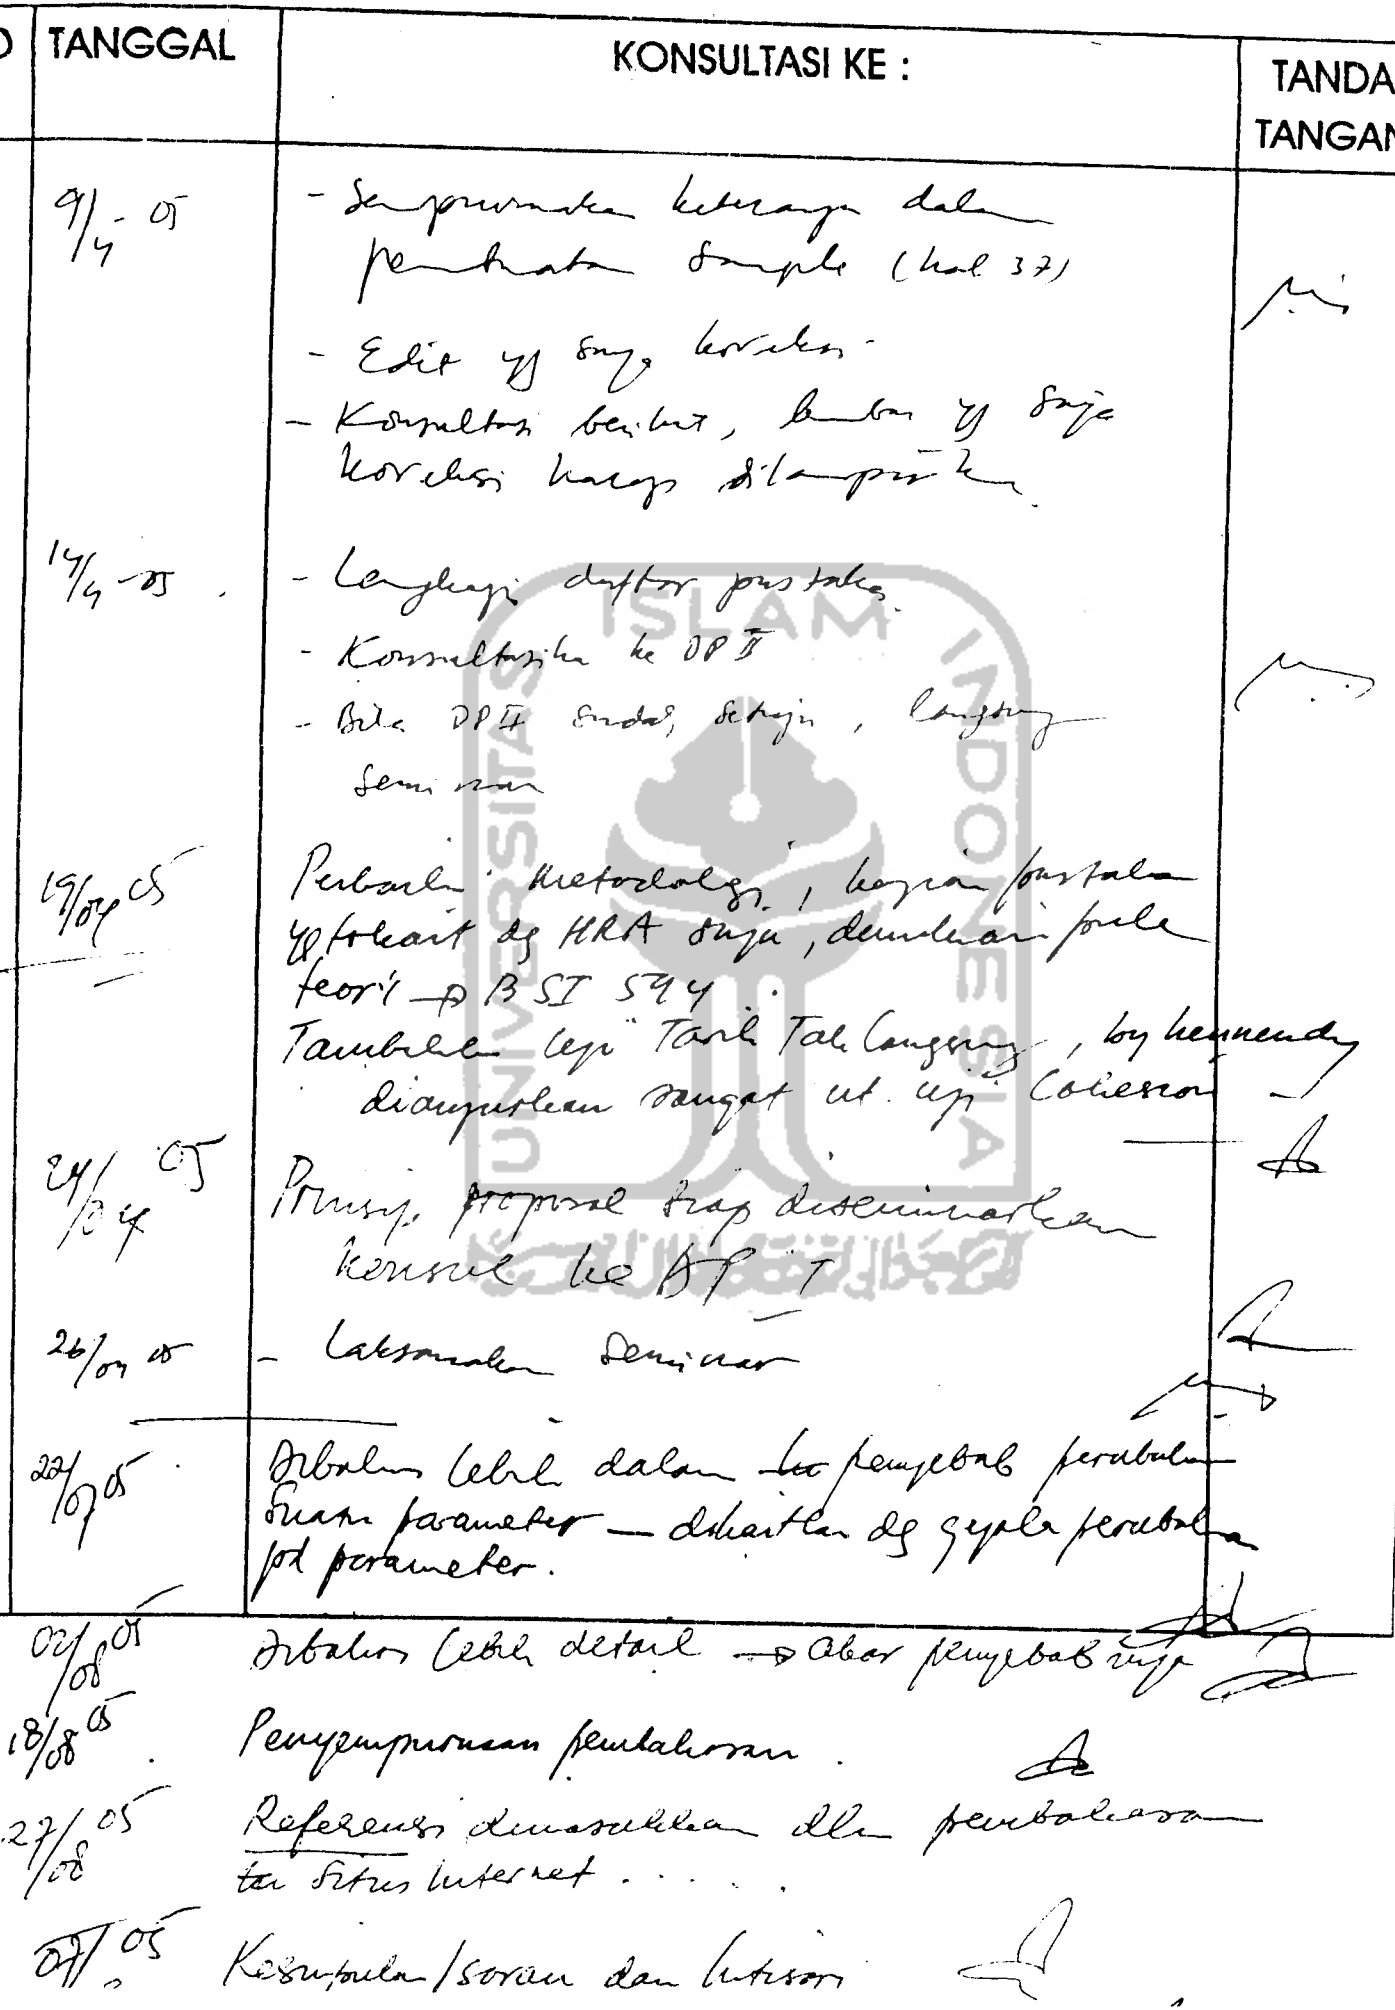 TANGGAL KONSULTASI KE : TANDA
TANGAN
9/4 - 05 - Sempurnakan keterangan dalam
pembuatan sample (hal 37)
- Edit yg saya koreksi
- Konsultasi berikut, lembar yg saya
koreksi harap dilampirkan
14/4 - 05 - Lengkapi daftar pustaka
- Konsultasikan ke DP II
- Bila DP II sudah setuju, langsung
seminar
19/04 05 Perbaiki metodologi, kajian pustaka
yg terkait dg HRA saja, demikian pula
teori → BSI 594
Tambahkan uji Tarik Tak langsung, by kennendy
dianjurkan sangat ut. uji Cohesion
24/04 05 Prinsip, proposal siap diseminarkan
konsul ke DP I
26/04 05 - Laksanakan seminar
22/07 05 Dibahas lebih dalam penyebab perubahan
suatu parameter — dikaitkan dg gejala perubahan
pd parameter.
02/08 05 Dibahas lebih detail → akar penyebabnya
18/08 05 Penyempurnaan pembahasan.
27/08 05 Referensi dimasukkan dlm pembahasan
Situs Internet . . . . .
05 Kesimpulan/saran dan Intisari
UNIVERSITAS ISLAM INDONESIA